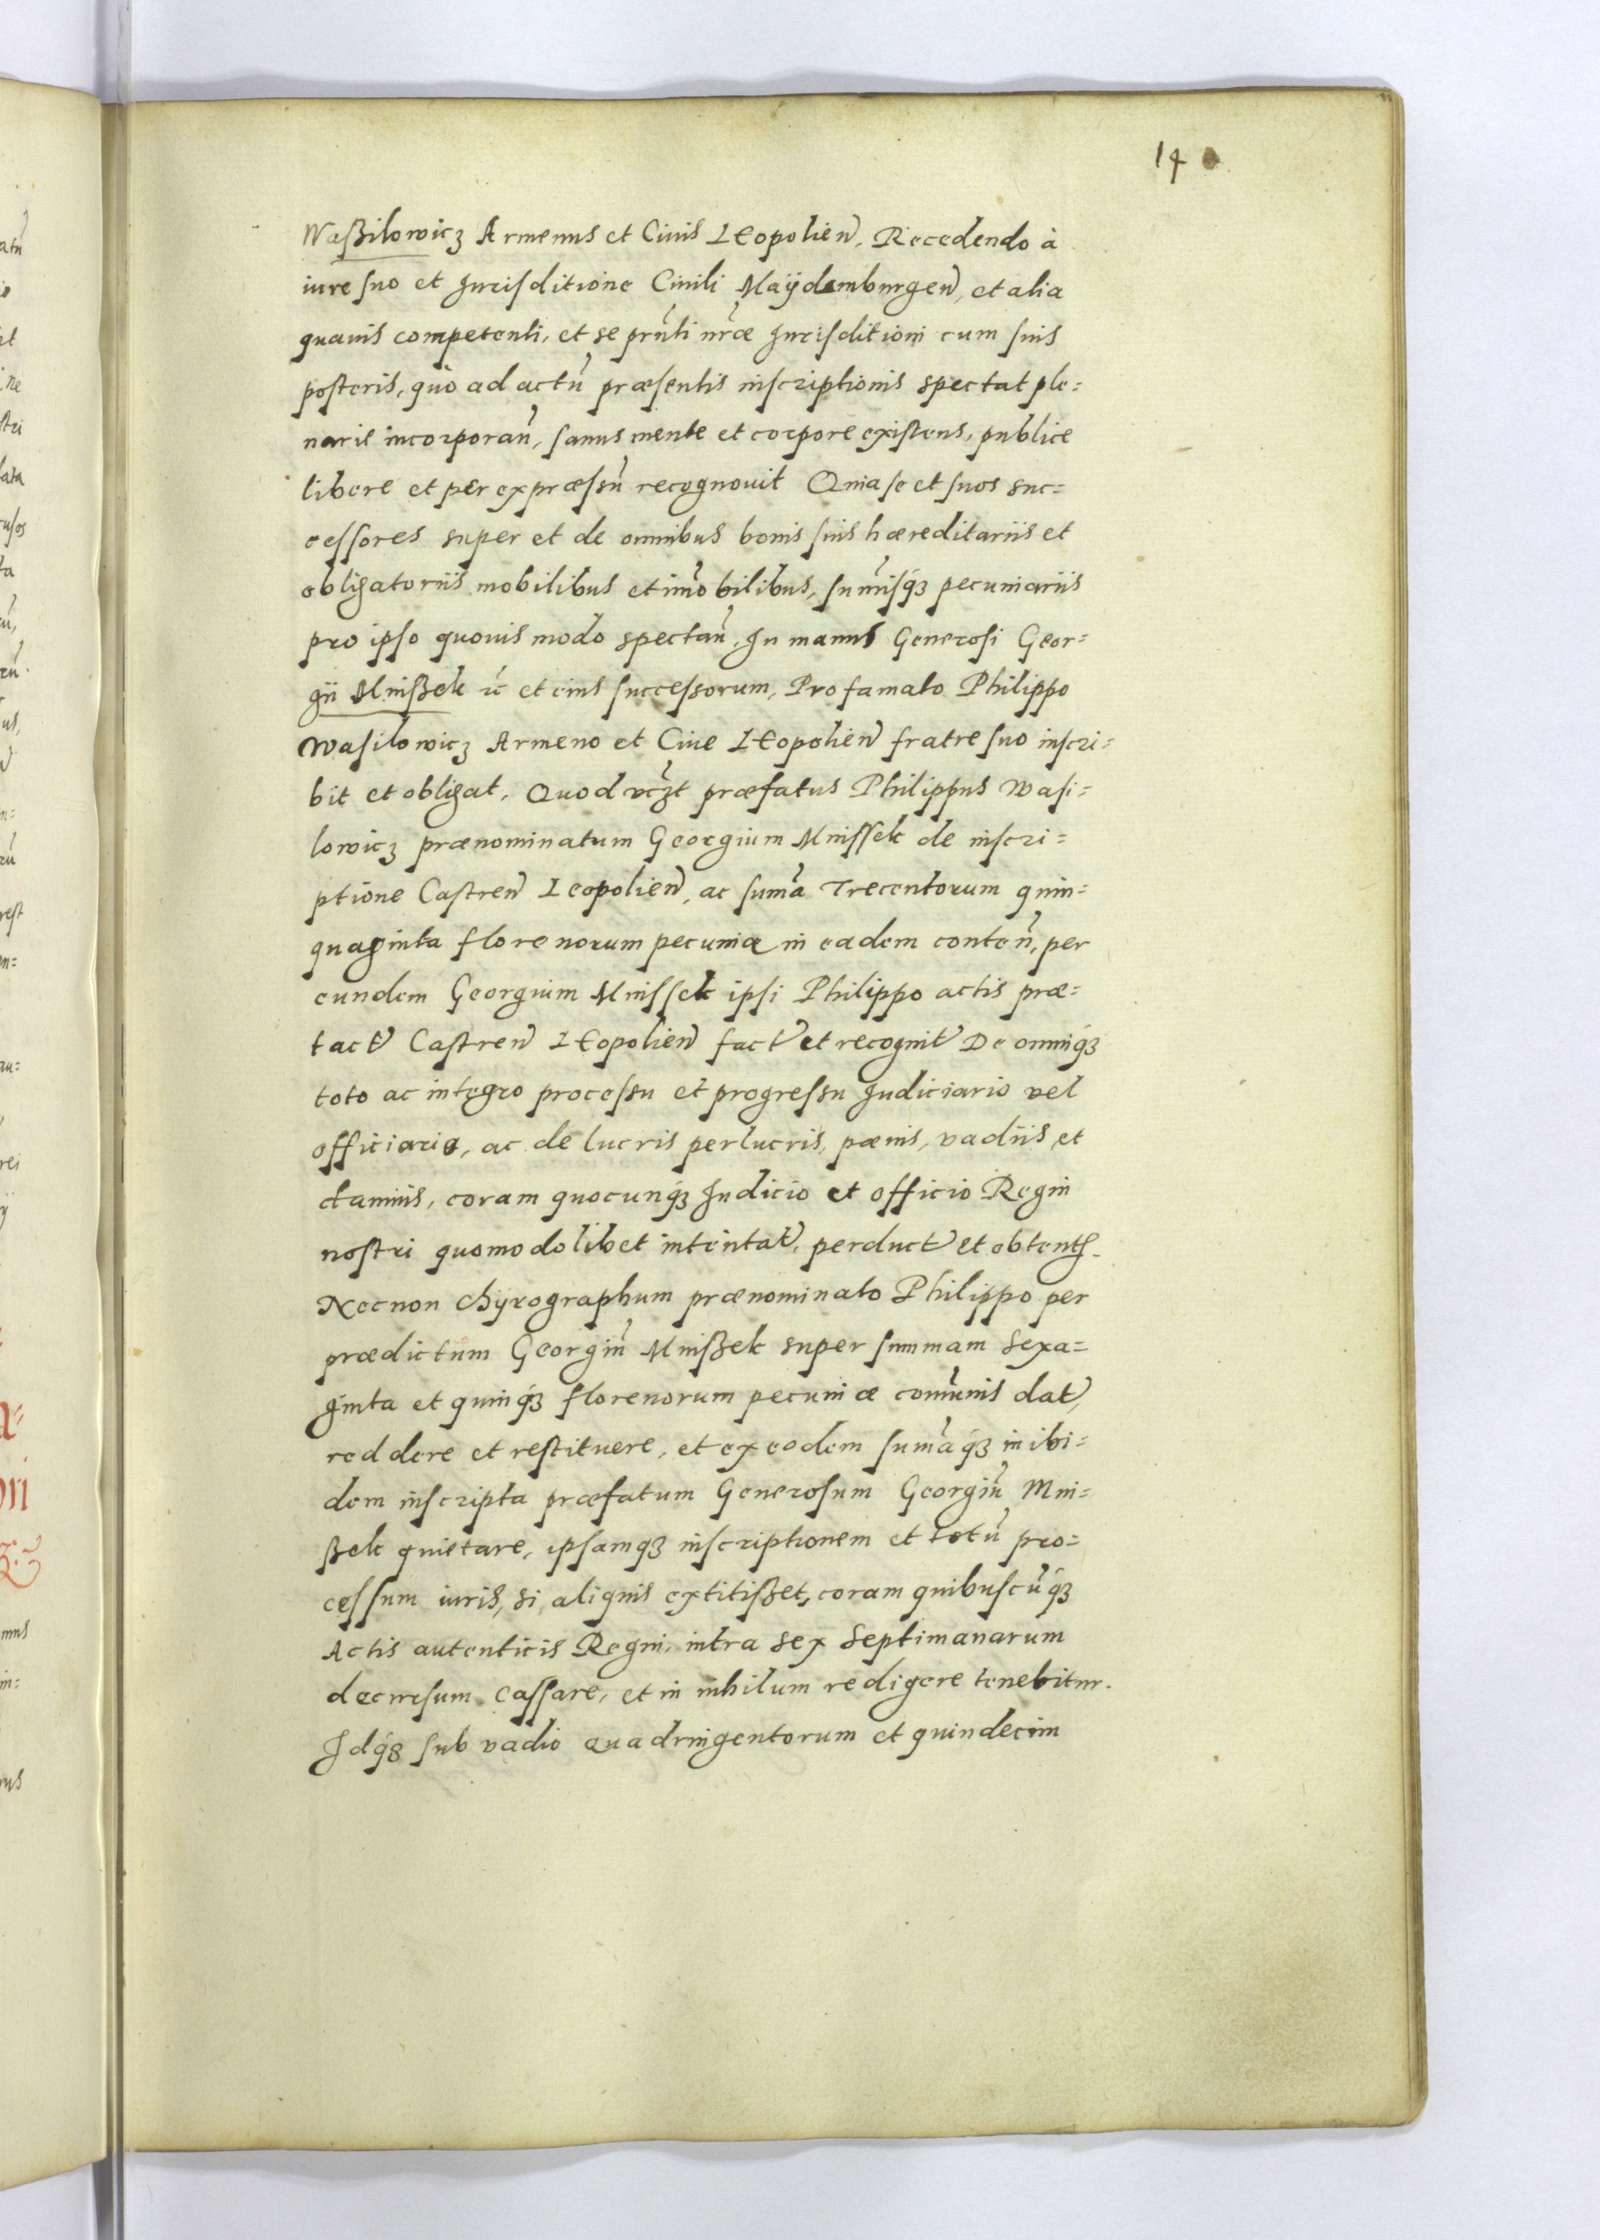 14
Waßilowicz Armenus et Civis Leopolien̄, Recedendo à
iure suo et Jurisditione Civili Maÿdemburgen̄, et alia
quavis competenti, et se prn̄ti nr̄æ Jurisditioni cum suis
posteris, quò ad actū præsentis inscriptionis spectat ple=
narie incorporan̄, sanus mente et corpore existens, publice
libere et per expræssū recognovit Quia se et suos suc=
cessores super et de omnibus bonis suis hæreditariis et
obligatoriis mobilibus et im̄obilibus, sum̄isq́ꝫ pecuniariis
pro ipso quovis modo spectan̄, In manus Generosi Geor=
gii Mnißek ꝛc̄ et eius successorum, Pro famato Philippo
Wasilowicz Armeno et Cive Leopolien̄ fratre suo inscri=
bit et obligat, Quod vcꝫt præfatus Philippus Wasi=
lowicz prænominatum Georgium Mnissek de inscri=
ptione Castren̄ Leopolien̄, ac sum̄a Trecentorum quin=
quaginta florenorum pecuniæ in eadem conten̄, per
eundem Georgium Mnissek ipsi Philippo actis præ=
tact̄ Castren̄ Leopolien̄ fact̄ et recognit̄ De omniq́ꝫ
toto ac integro processu et progressu Judiciario vel
officiario, ac de lucris perlucris, pænis, vadiis et
damnis, coram quocunq́ꝫ Judicio et officio Regni
nostri quomodolibet intentat̄, perduct̄ et obtent̄.
Necnon chyrographum prænominato Philippo per
prædictum Georgiū Mnißek super summam Sexa=
ginta et quinq́ꝫ florenorum pecuniæ com̄unis dat̄,
reddere et restituere, et ex eodem sum̄aq́ꝫ in ibi=
dem inscripta præfatum Generosum Georgiū Mni=
ßek quietare, ipsamqꝫ inscriptionem et totū pro=
cessum iuris, si aliquis extitißet, coram quibuscūq́ꝫ
Actis autenticis Regni, intra sex Septimanarum
decursum Cassare, et in nihilum redigere tenebitur.
Idq́ꝫ sub vadio Quadringentorum et quindecim